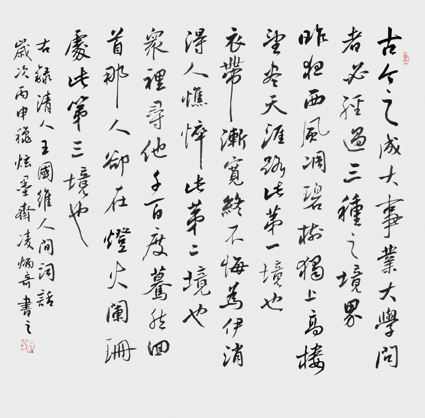 古今之成大事業大學問
者必經過三種之境界
昨夜西風凋碧樹獨上高樓
望盡天涯路此第一境也
衣帶漸寬終不悔為伊消
得人憔悴此第二境也
眾裡尋他千百度驀然迴
首那人卻在燈火闌珊
處此第三境也
右錄清人王國維人間詞話
歲次丙申穐炫墨齋凌炳奇書之